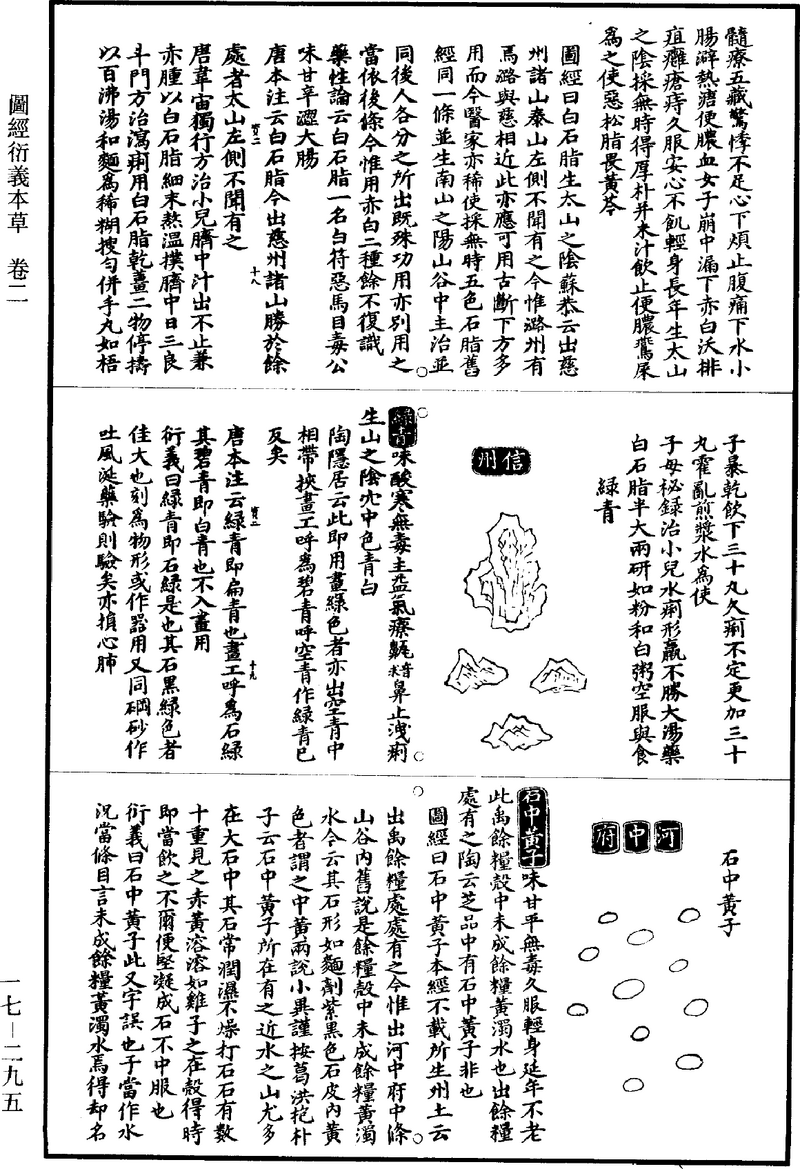 圖經衍義本草　卷二
一七—二九五
髓療五藏驚悸不足心下煩止腹痛下水小
腸澼熱溏便膿血女子崩中漏下赤白沃排
疽癰瘡痔久服安心不飢輕身長年生太山
之陰採無時得厚朴并米汁飲止便膿鷰屎
為之使惡松脂畏黃芩
圖經曰白石脂生太山之陰蘇恭云出慈
州諸山泰山左側不聞有之今惟潞州有
焉潞與慈相近此亦應可用古斷下方多
用而今醫家亦稀使採無時五色石脂舊
經同一條並生南山之陽山谷中主治並
同後人各分之所出既殊功用亦別用之
當依後條今惟用赤白二種餘不復識
藥性論云白石脂一名白符惡馬目毒公
味甘辛澀大腸
唐本注云白石脂今出慈州諸山勝於餘
處者太山左側不聞有之
唐韋宙獨行方治小兒臍中汁出不止兼
赤腫以白石脂細末熬溫撲臍中日三良
斗門方治瀉痢用白石脂乾薑二物停擣
以百沸湯和麵為稀糊搜勻併手丸如梧
子暴乾飲下三十丸久痢不定更加三十
丸霍亂煎漿水為使
子母祕録治小兒水痢形羸不勝大湯藥
白石脂半大兩研如粉和白粥空服與食
綠青
信州
綠青味酸寒無毒主益氣療鼽鼻止洩痢
生山之陰穴中色青白
陶隱居云此即用畫綠色者亦出空青中
相帶挾畫工呼為碧青呼空青作綠青已
反矣
唐本注云綠青即扁青也畫工呼為石綠
其碧青即白青也不入畫用
衍義曰綠青即石綠是也其石黑綠色者
佳大也刻為物形或作器用又同硇砂作
吐風涎藥驗則驗矣亦損心肺
石中黃子
河中府
石中黃子味甘平無毒久服輕身延年不老
此禹餘糧殼中未成餘糧黃濁水也出餘糧
處有之陶云芝品中有石中黃子非也
圖經曰石中黃子本經不載所生州土云
出禹餘糧處處有之今惟出河中府中條
山谷內舊說是餘糧殼中未成餘糧黃濁
水今云其石形如麵劑紫黑色石皮內黃
色者謂之中黃兩說小異謹按葛洪抱朴
子云石中黃子所在有之近水之山尤多
在大石中其石常潤濕不燥打石石有數
十重見之赤黃溶溶如雞子之在殼得時
即當飲之不爾便堅凝成石不中服也
衍義曰石中黃子此又字誤也子當作水
況當條自言未成餘糧黃濁水焉得却名